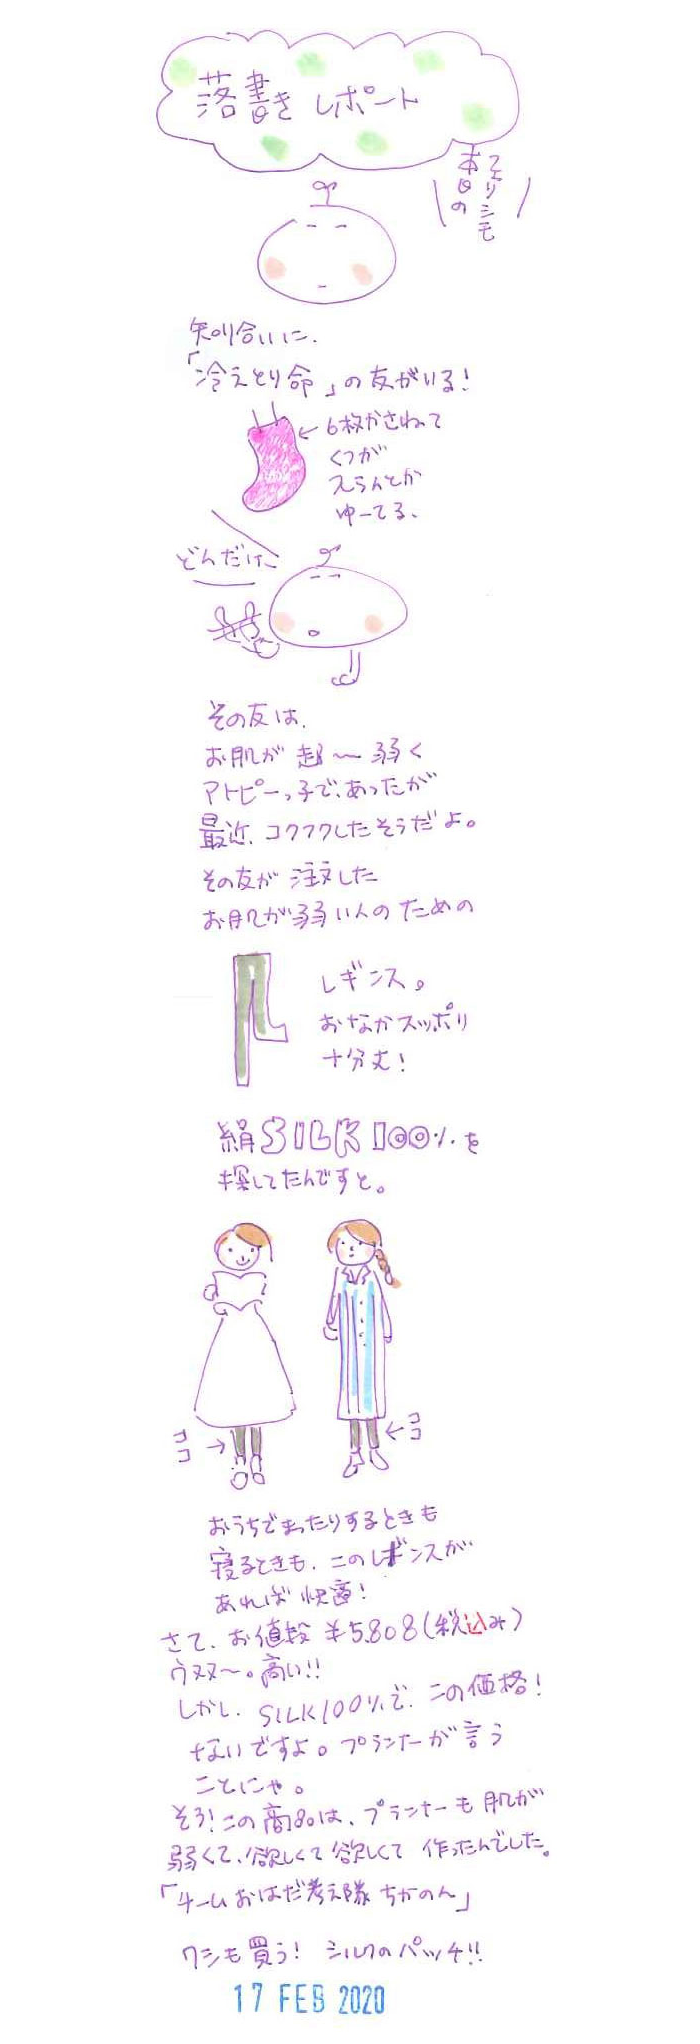 落書きレポート
本日の
フェリシモ
知り合いに、
「冷えとり命」の友がいる!
←6枚かさねて
くつが
えらんとか
ゆーてる、
どんだけ
その友は、
お肌が超〜弱く
アトピーっ子で、あったが
最近、コクフクしたそうだよ。
その友が注文した
お肌が弱い人のための
レギンス。
おなかスッポリ
十分丈!
絹SILK100%を
探してたんですと。
ココ→
←ココ
おうちでまったりするときも
寝るときも、このレギンスが
あれば快適!
さて、お値段¥5,808(税込み)
ウヌヌ〜。高い!!
しかし、SILK100%で、この価格!
ないですよ。プランナーが言う
ことにゃ。
そう!この商品は、プランナーも肌が
弱くて、欲しくて欲しくて作ったんでした。
「チームおはだ考え隊ちかのん」
ワシも買う!シルクのパッチ!!
17 FEB 2020